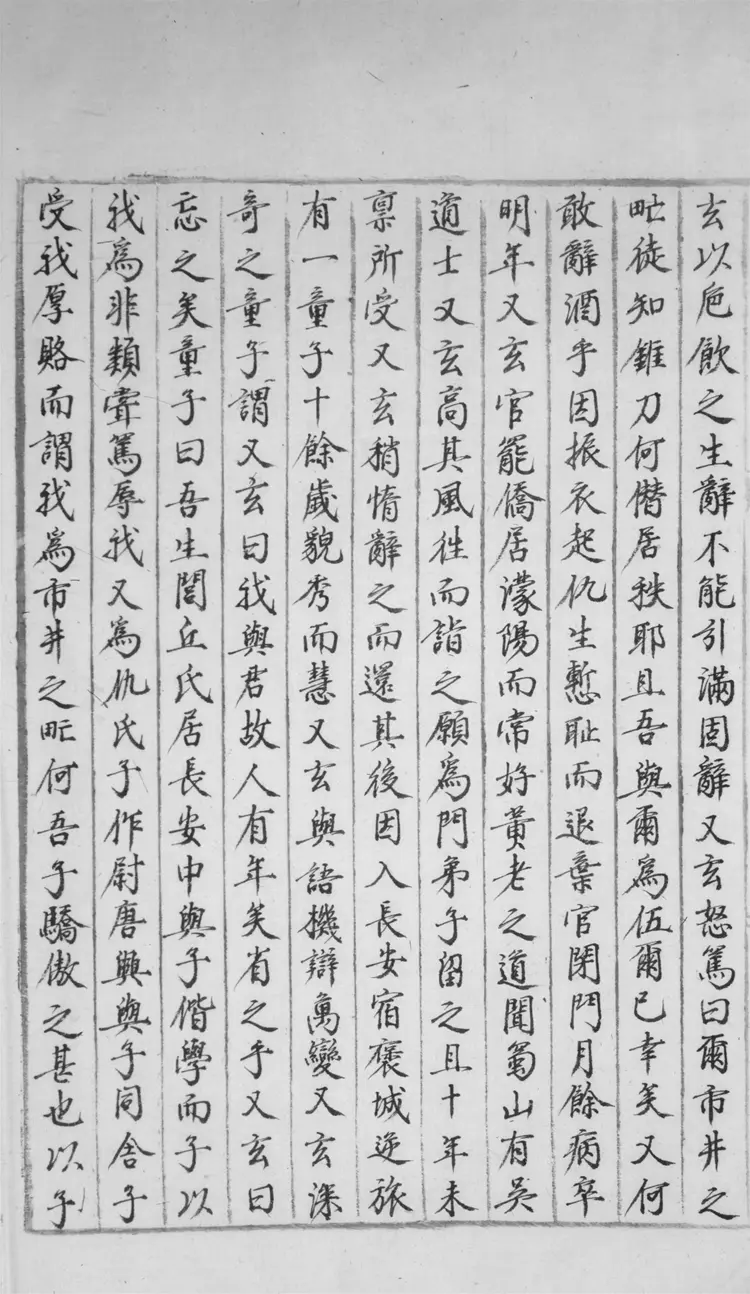 玄以巵飲之生辭不能引滿固辭又玄怒罵曰爾市井之
甿徒知錐刀何僣居秩耶且吾與爾爲伍爾已幸矣又何
敢辭酒乎因振衣起仇生慙耻而退棄官閉門月餘病卒
明年又玄官罷僑居濛陽而常好黃老之道聞蜀山有吳
道士又玄高其風徃而詣之願爲門弟子留之且十年未
禀所受又玄稍惰辭之而還其後因入長安宿襃城逆旅
有一童子十餘歲貌秀而慧又玄與語機辯萬變又玄深
奇之童子謂又玄曰我與君故人有年矣省之乎又玄曰
忘之矣童子曰吾生閭丘氏居長安中與子偕學而子以
我爲非類甞罵辱我又爲仇氏子作尉唐興與子同舍子
受我厚賂而謂我爲市井之甿何吾子驕傲之甚也以子